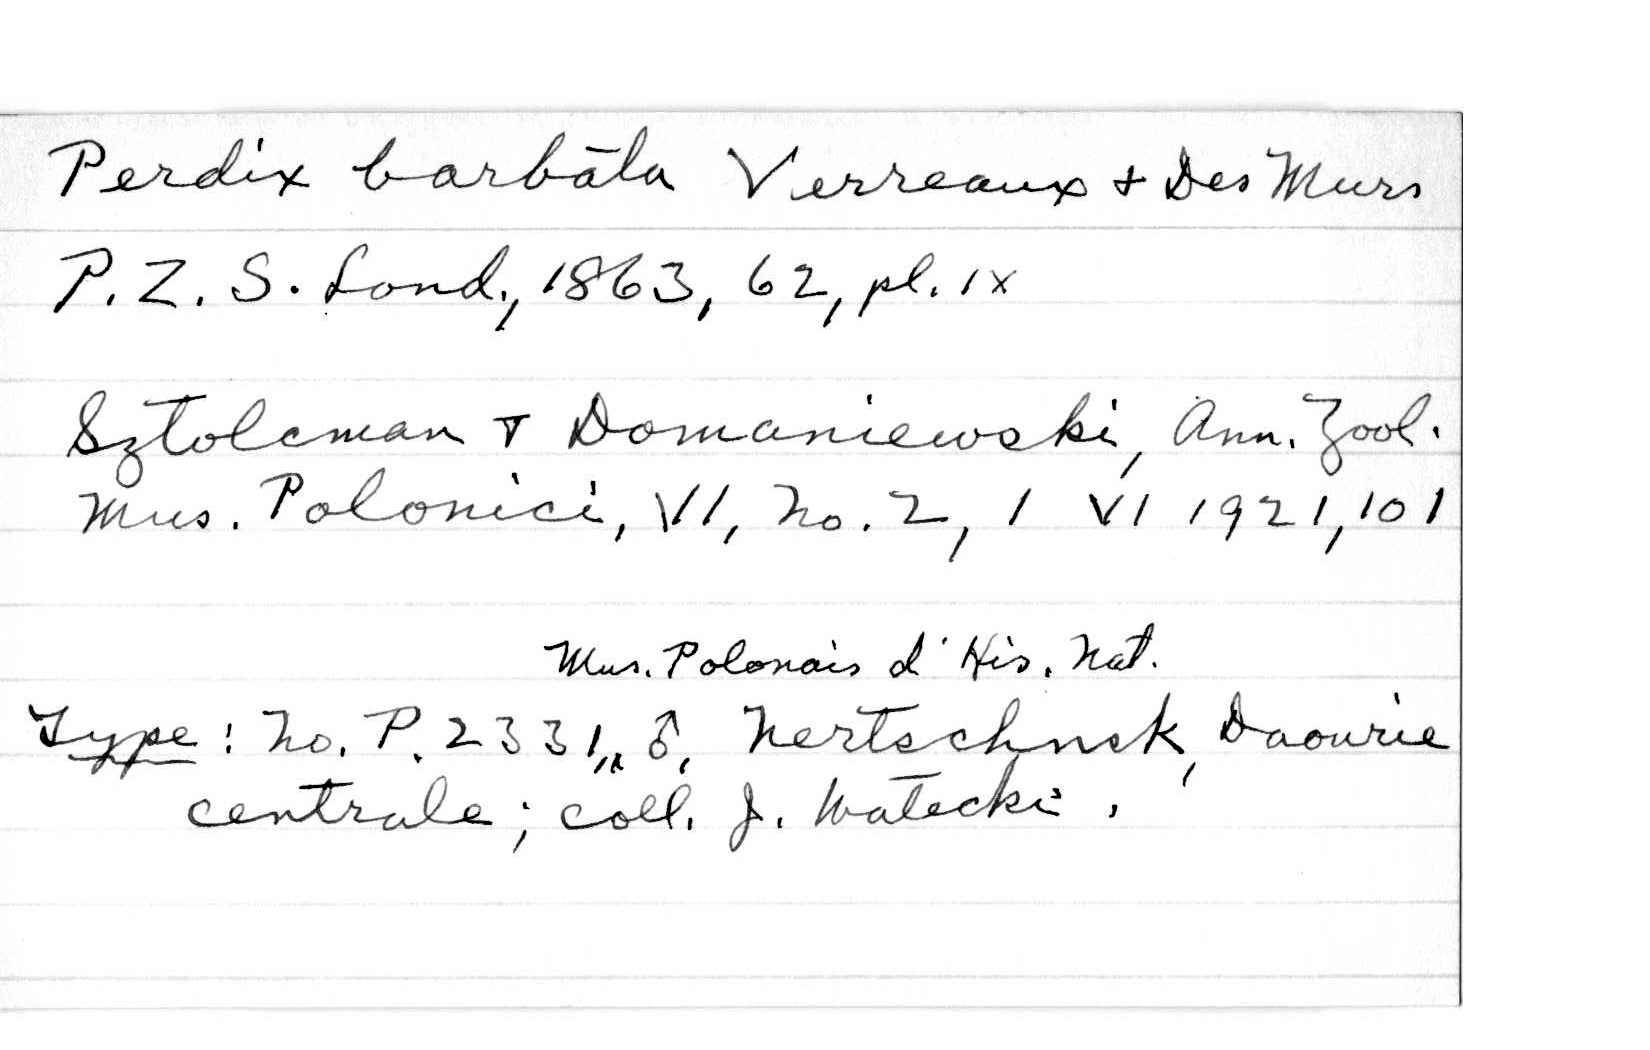 Perdix barbāta Verreaux + Des Murs
P. Z. S. Lond., 1863, 62, pl. ix
Sztolcman + Domaniewski, Ann. Zool.
Mus. Polonici, VI, No. 2, 1 VI 1921, 101
Mus. Polonais d'His. Nat.
Type: No. P. 2331, ♂, Nertschnsk, Daourie
centrale; coll. J. Watecki.